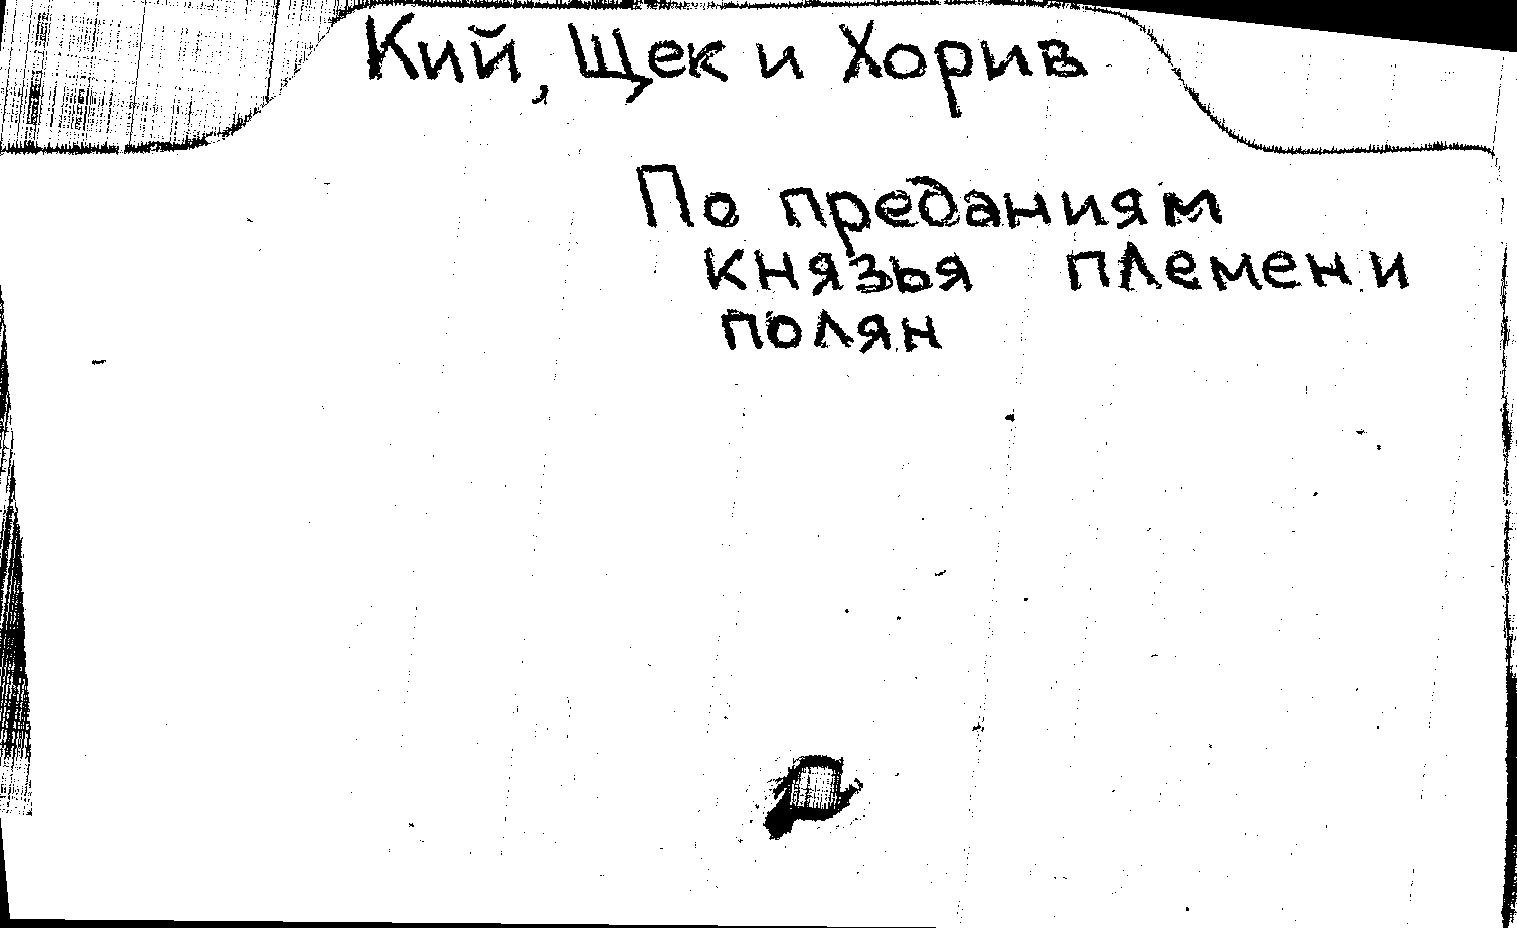 Кий, Щек и Хорив
По преданиям
князья племени
полян